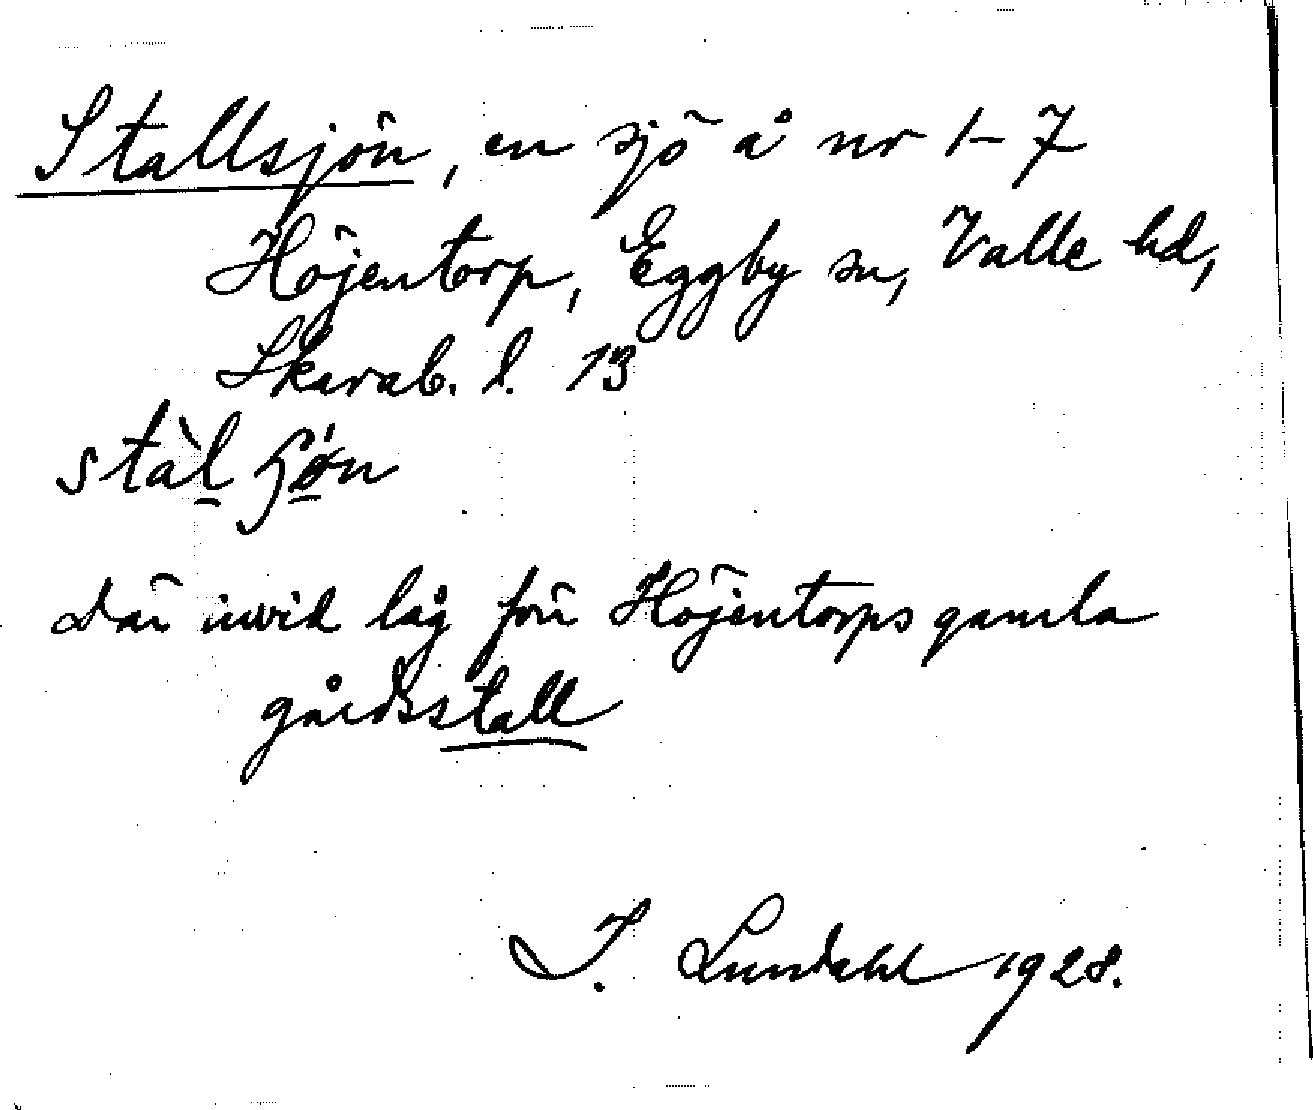 Stallsjön, en sjö å nr 1-7
Höjentorp, Eggby sn, Valle hd,
Skarab. l. 13
stàl ʃǿn
Där invid låg förr Höjentorps gamla
gårdsstall
I. Lundahl 1928.